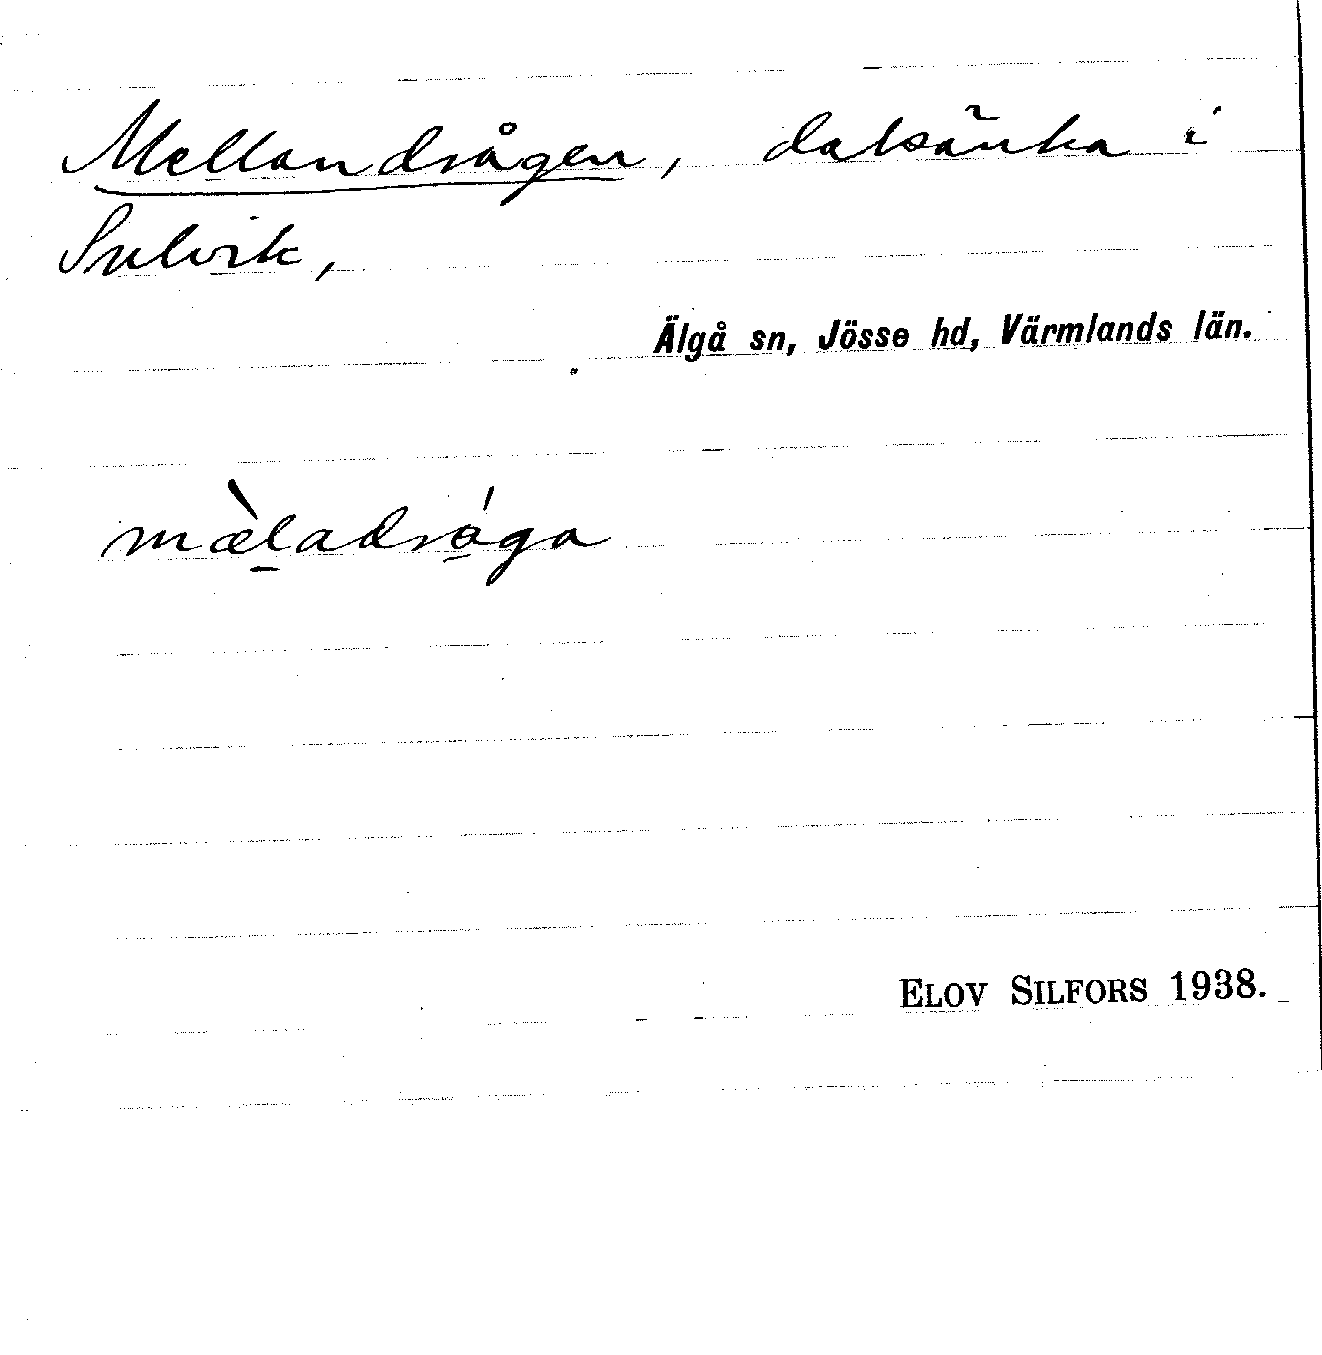 Mellandrågen, dalsänka i
Sulvik,
Älgå sn, Jösse hd, Värmlands län.
mæ̀ladråga
ELOV SILFORS 1938.